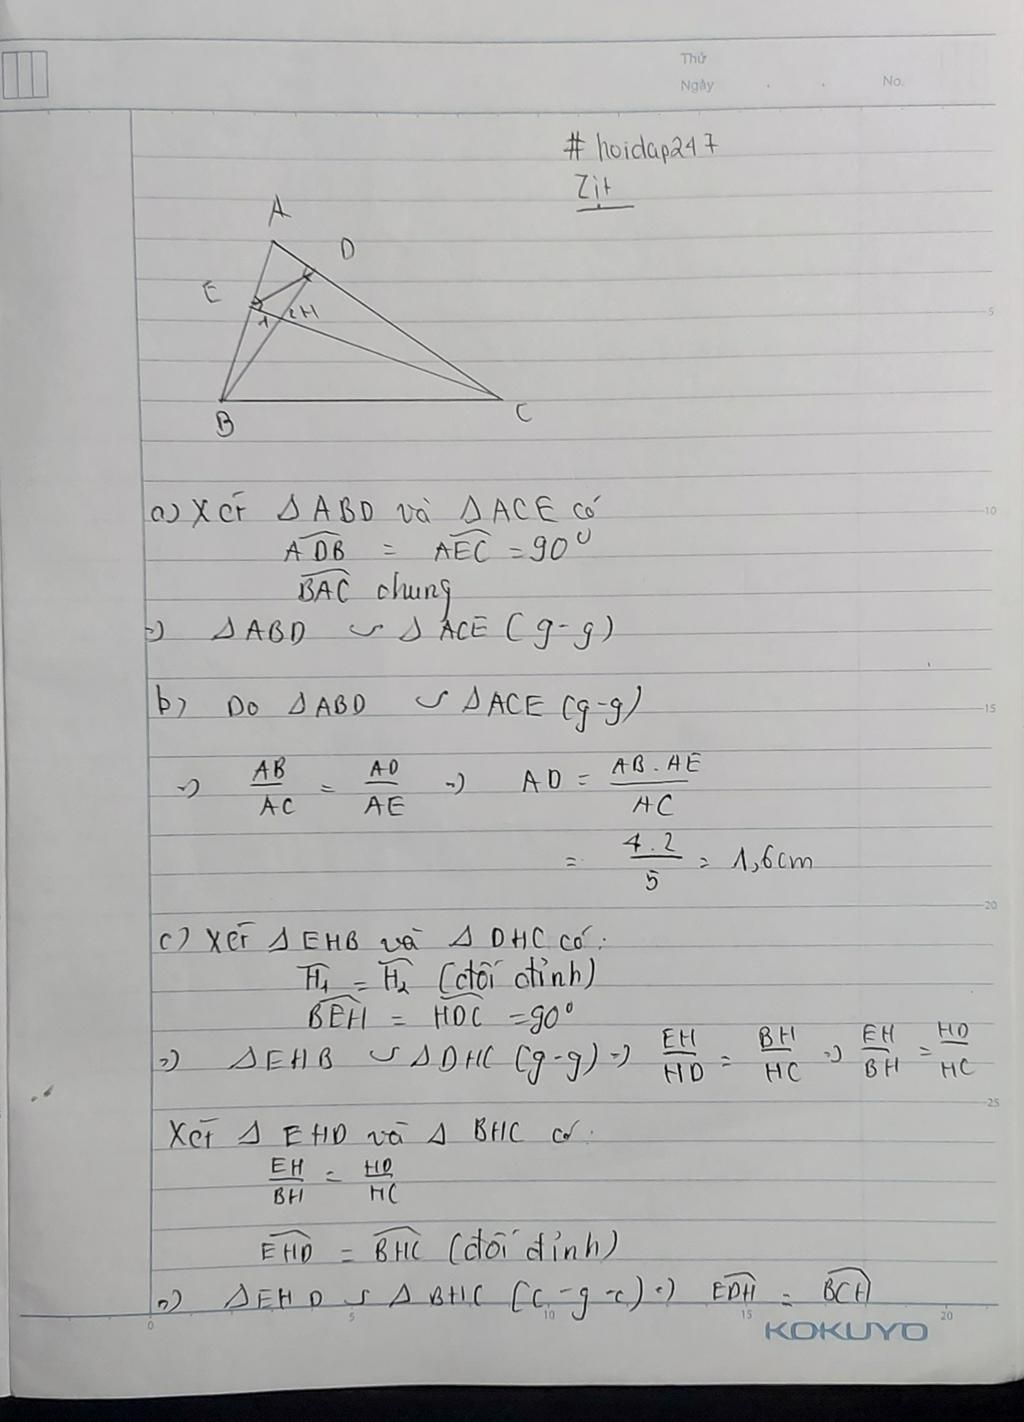 Thứ
Ngày . . No.
# hoidap247
Zịt
A
D
E
1 2 H
B
C
a) Xét Δ ABD và Δ ACE có
ADB = AEC = 90°
BAC chung
=) Δ ABD ∽ Δ ACE (g-g)
b) Do Δ ABD ∽ Δ ACE (g-g)
=) AB/AC = AD/AE =) AD = AB . AE/AC
= 4.2/5 = 1,6cm
c) Xét Δ EHB và Δ DHC có:
H1 = H2 (đối đỉnh)
BEH = HDC = 90°
=) Δ EHB ∽ Δ DHC (g-g) =) EH/HD = BH/HC =) EH/BH = HD/HC
Xét Δ EHD và Δ BHC có:
EH/BH = HD/HC
EHD = BHC (đối đỉnh)
=) Δ EHD ∽ Δ BHC (c-g-c) =) EDH = BCH
0 5 10 15 20
KOKUYO
5
10
15
20
25